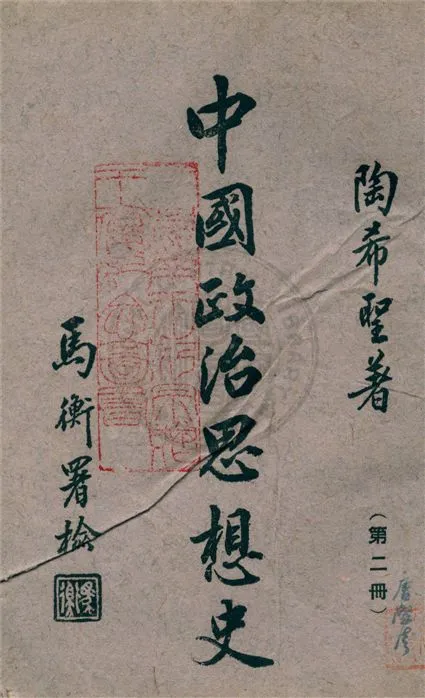 陶希聖著
(第二冊)
中國政治思想史
馬衡署檢